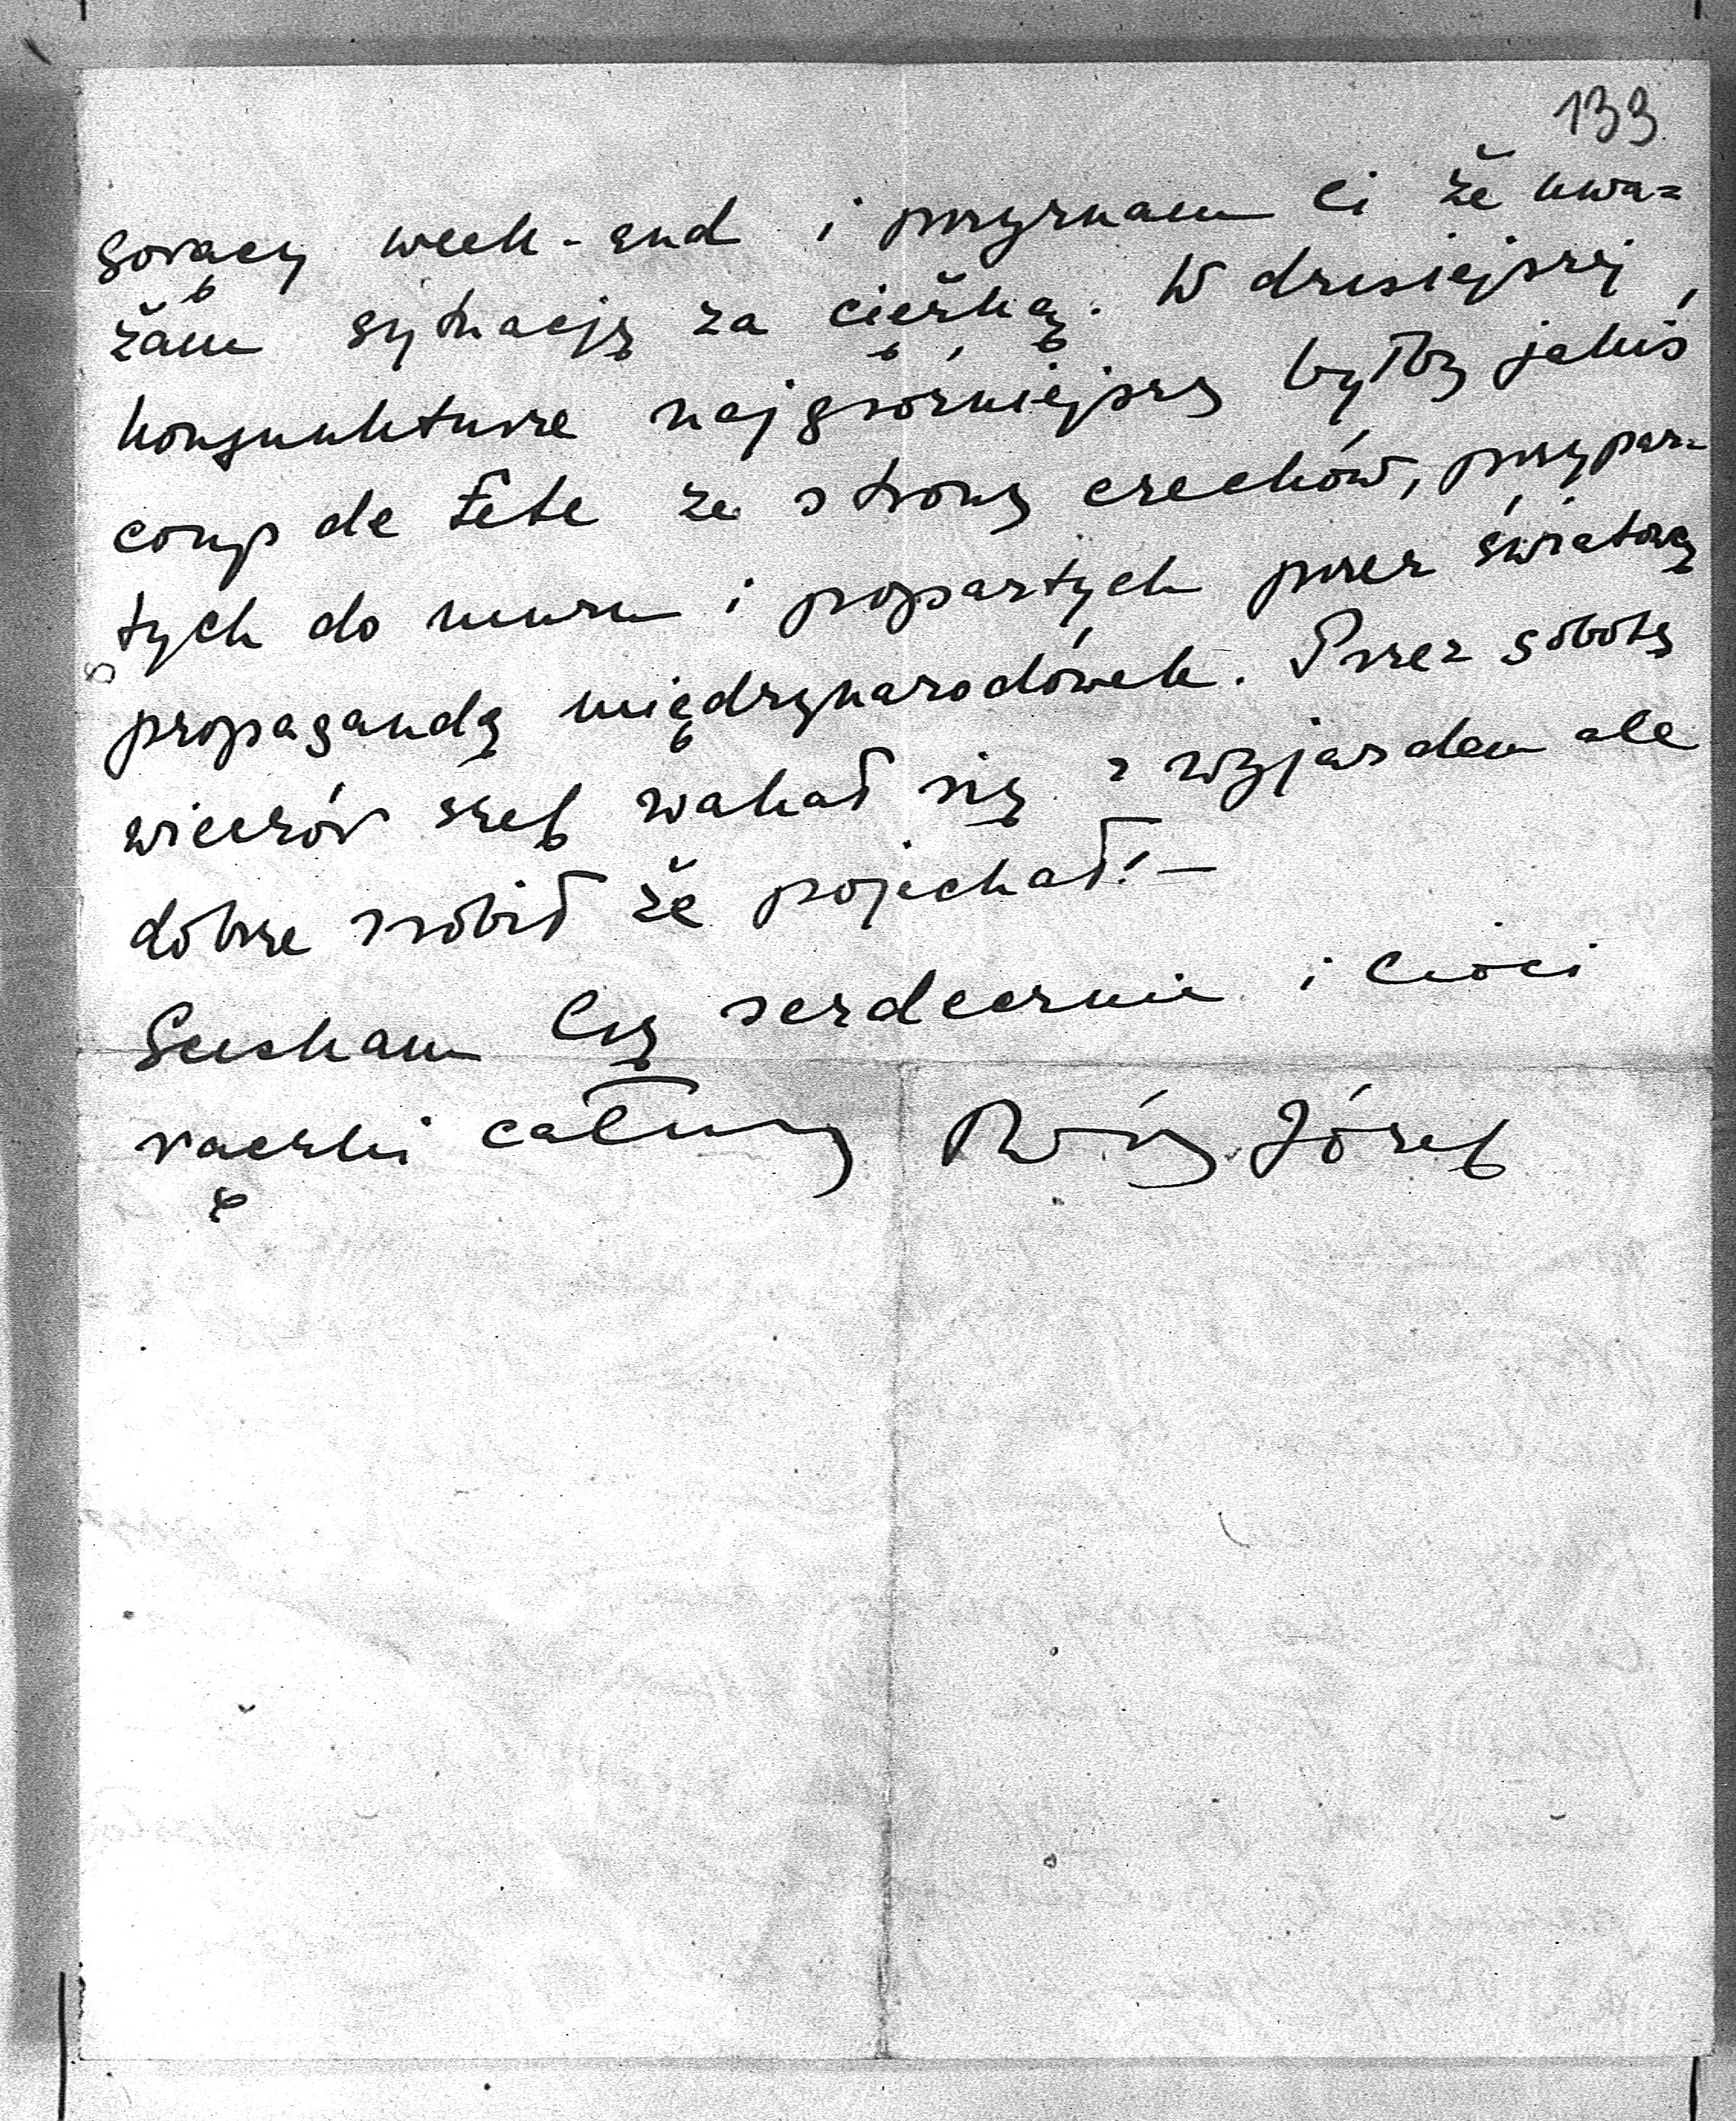 133
gorący week-end i przyznam Ci że uwa=
żam sytuację za ciężką. W dzisiejszej
konjunkturze najgroźniejszy byłby jakiś
coup de tête ze strony czechów, przypar=
tych do muru i popartych przez światową
propagandę międzynarodówek. Przez sobotę
wieczór szef wahał się z wyjazdem ale
dobrze zrobił że pojechał! —
Sciskam Cię serdecznie i Cioci
rączki całuję Twój Józef